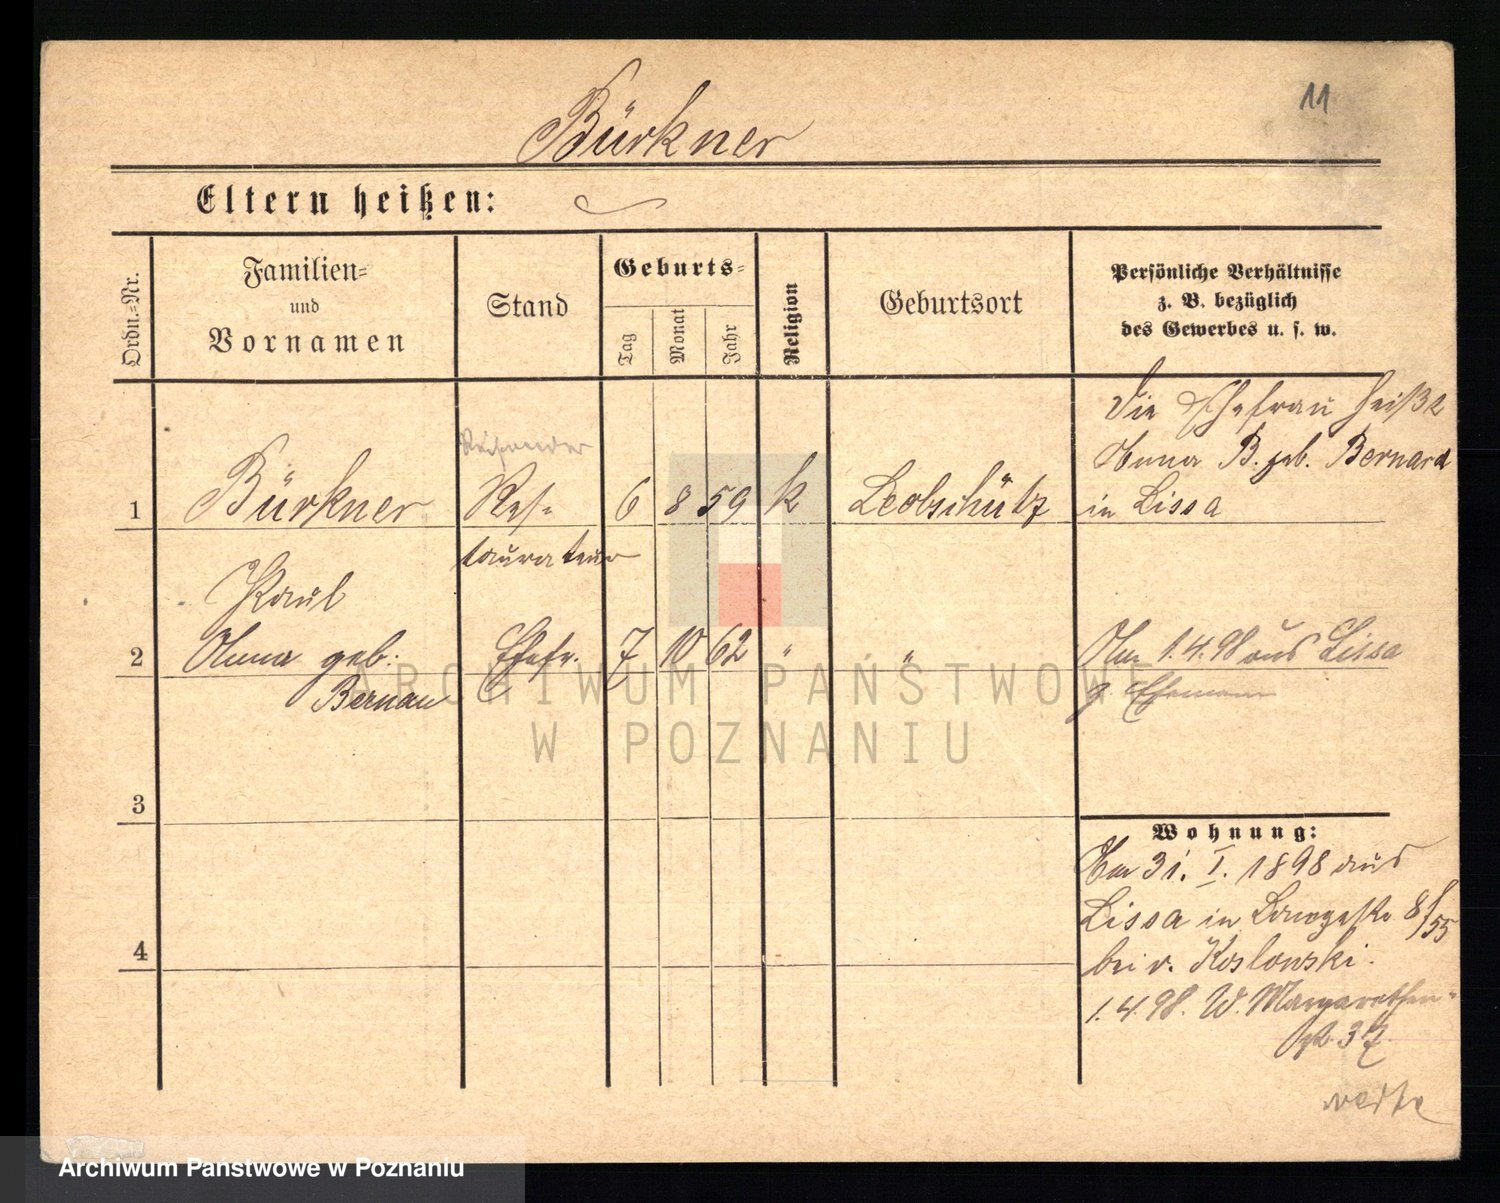 11
Bürkner
Eltern heißen:
Ordn.-Nr.
Familien-
und
Vornamen
Stand
Geburts-
Tag
Monat
Jahr
Religion
Geburtsort
Persönliche Verhältnisse
z. B. bezüglich
des Gewerbes u. s. w.
1
Bürkner
Paul
Reisender
Res-
taurateur
6
8
59
k
Leobschütz
Die Ehefrau heißt
Anna B. geb. Bernard
in Lissa
2
Anna geb.
Bernau
Ehefr.
7
10
62
"
"
Am 1.4.98 aus Lissa
z. Ehemann
3
4
Wohnung:
Am 31. I. 1898 aus
Lissa in Langestr 8/55
bei v. Koslowski.
1.4.98. W. Margarethen-
str. 37.
ARCHIWUM PAŃSTWOWE
W POZNANIU
Archiwum Państwowe w Poznaniu